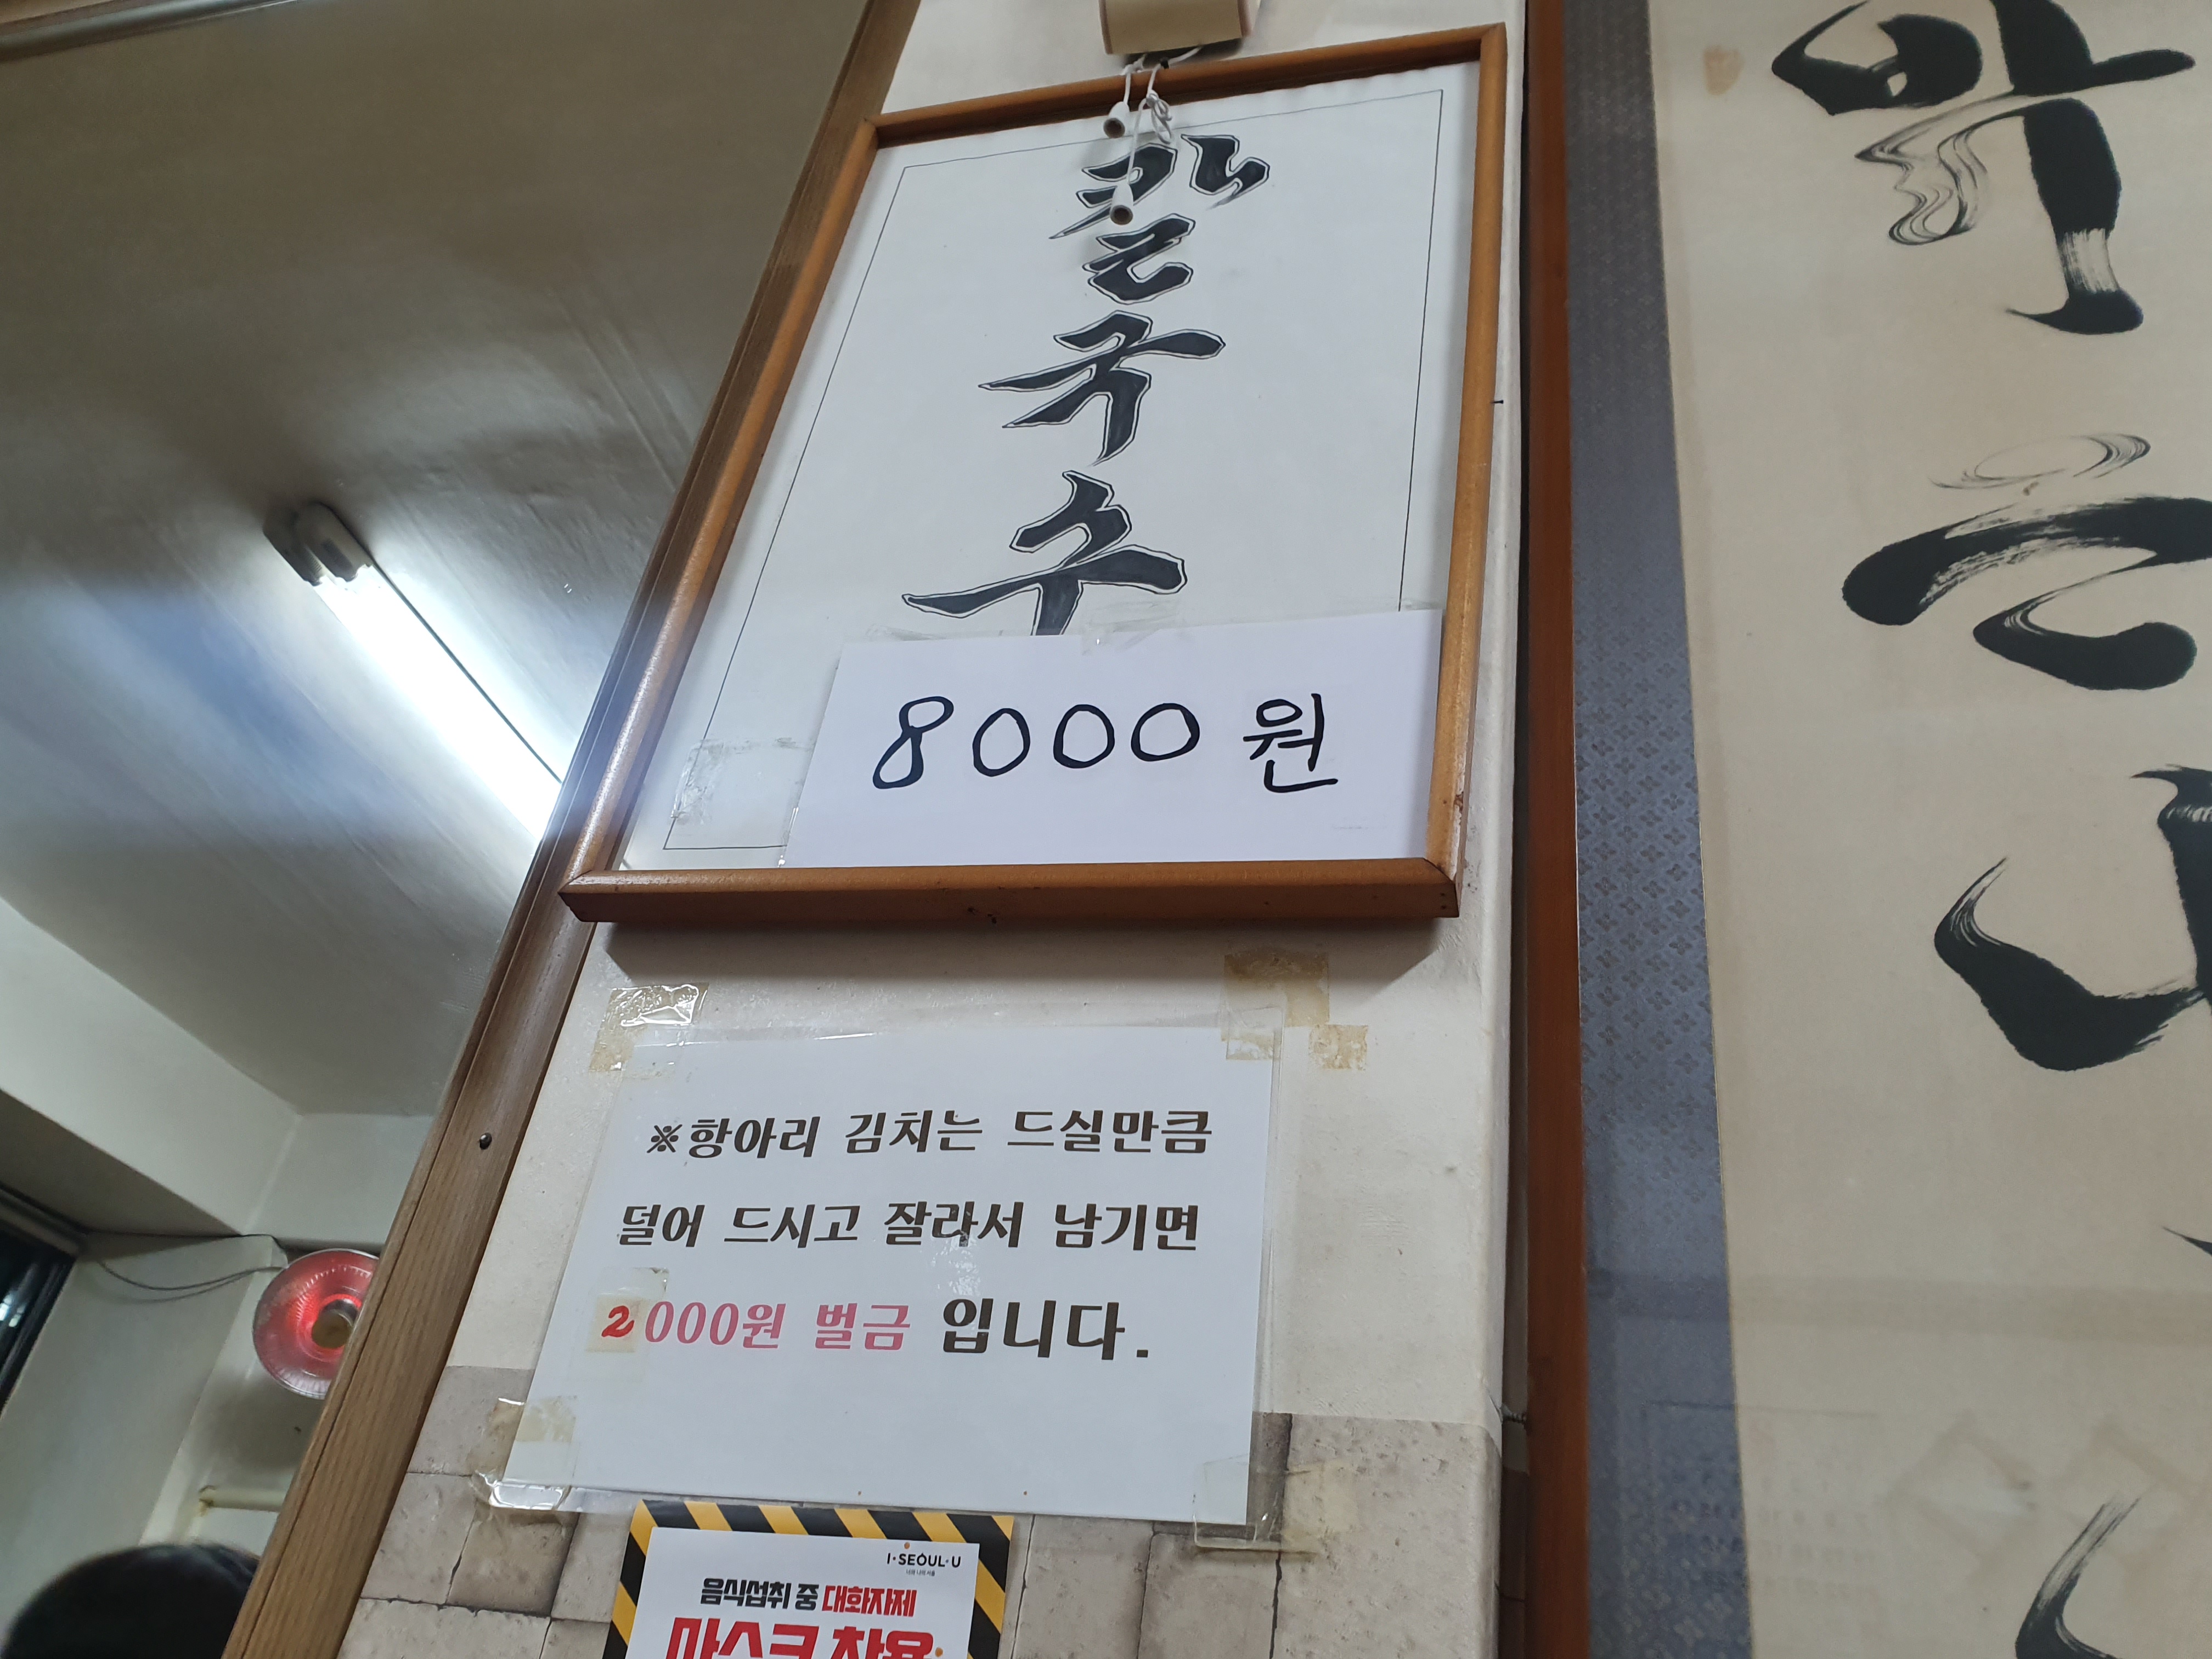 칼국수
8000원
※항아리 김치는 드실만큼
덜어 드시고 잘라서 남기면
2000원 벌금 입니다.
I·SEOUL·U
음식섭취 중 대화자제
마스크 착용